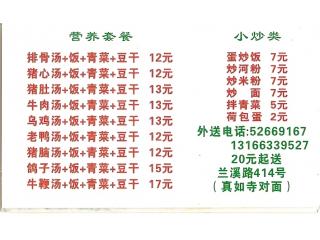 营养套餐
排骨汤+饭+青菜+豆干 12元
猪心汤+饭+青菜+豆干 12元
猪肚汤+饭+青菜+豆干 13元
牛肉汤+饭+青菜+豆干 13元
乌鸡汤+饭+青菜+豆干 13元
老鸭汤+饭+青菜+豆干 12元
猪脑汤+饭+青菜+豆干 12元
鸽子汤+饭+青菜+豆干 15元
牛鞭汤+饭+青菜+豆干 17元
小炒类
蛋炒饭 7元
炒河粉 7元
炒米粉 7元
炒面 7元
拌青菜 5元
荷包蛋 2元
外送电话:52669167
13166339527
20元起送
兰溪路414号
(真如寺对面)